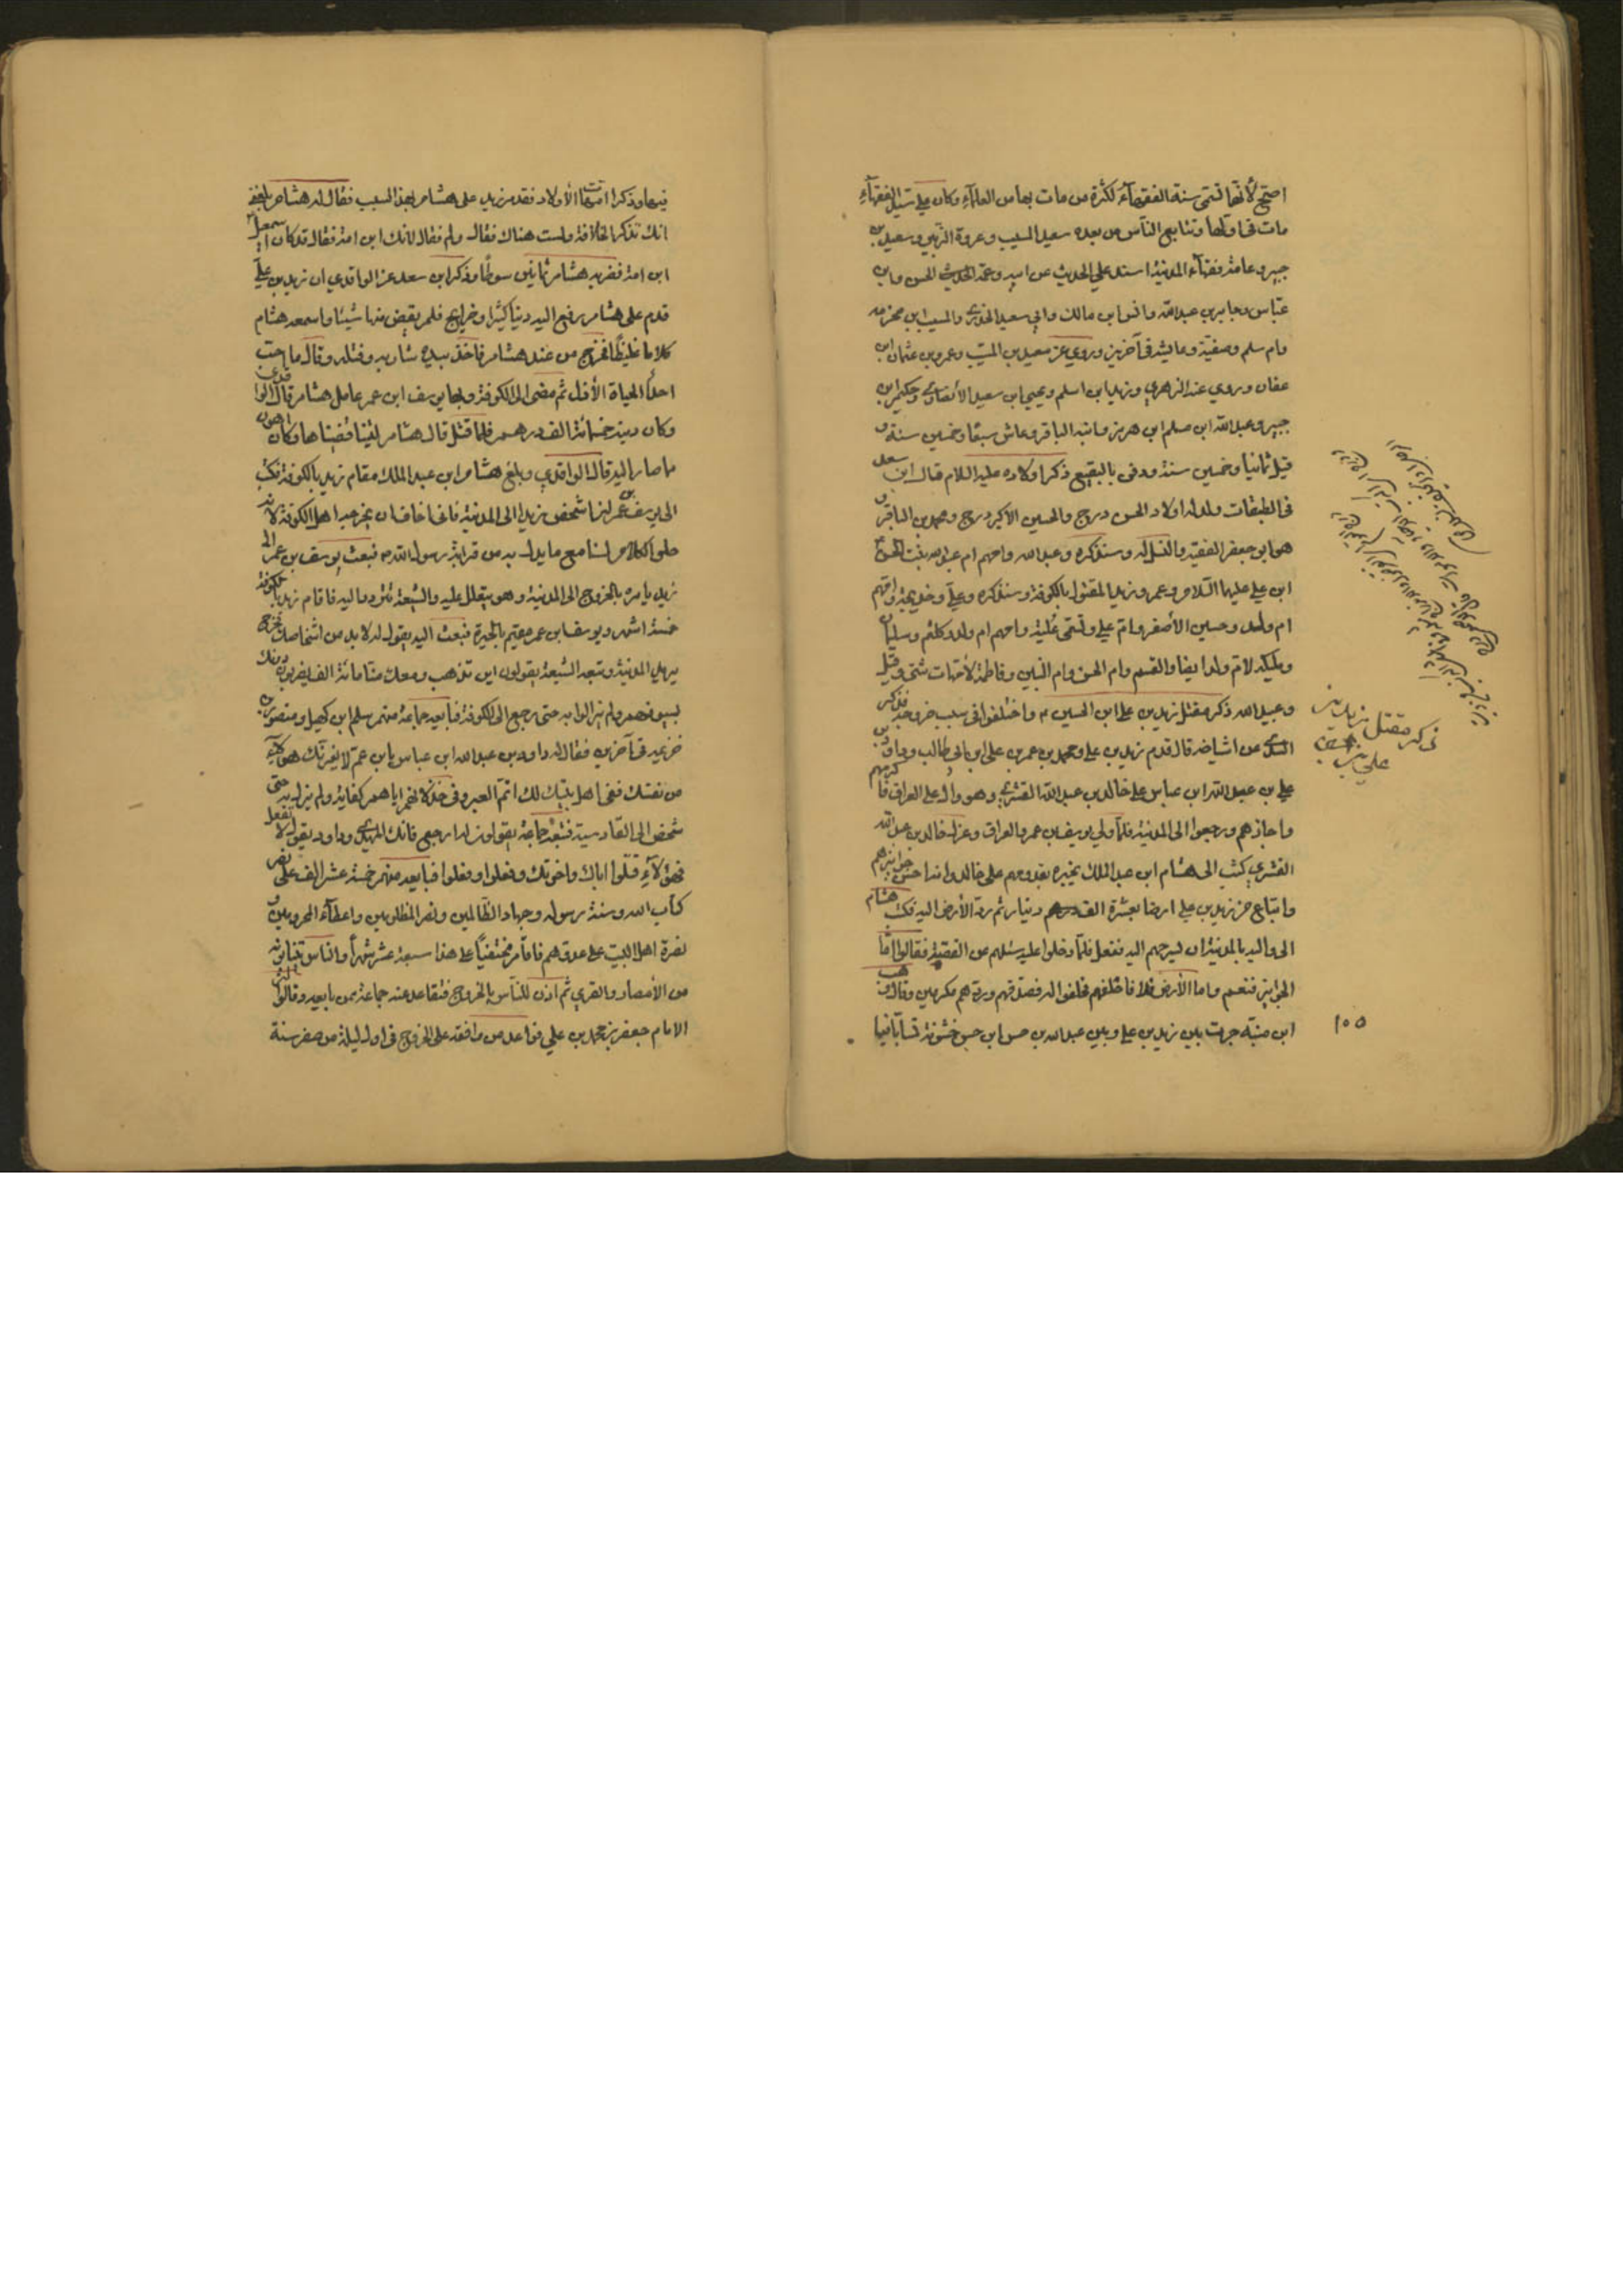 اصح لأنها تسمى سنة الفقهاء لكثرة من مات بها من العلماء وكان علي سيد الفقهاء
مات في اولها وتتابع الناس من بعده سعيد المسيب وعروة الزبير وسعيد بن
جبير وعامة فقهاء المدينة اسند علي الحديث عن ابيه وعمه الحسن وابن
عباس وجابر بن عبدالله وانس ابن مالك وابي سعيد الخدري والمسيب ابن مخرمه
وام سلم وصفية وعايشه في آخرين وروي عن سعيد بن المسيب وعمرو بن عثمان ابن
عفان وروي عنه الزهري وزيد ابن اسلم ويحيى ابن سعيد الأنصاري وحكيم ابن
جبير وعبدالله ابن مسلم ابن هرمز وابنه الباقر وعاش سبعًا وخمسين سنة و
قيل ثمانيا وخمسين سنة ودفن بالبقيع ذكر اولاده عليه السلام قال ابن سعد
في الطبقات ولد له اولاد الحسن درج والحسين الأكبر درج ومحمد بن الباقر و
هو ابو جعفر الفقيه والنسل له وسنذكره وعبدالله وامهم ام عبدالله بنت الحسن
ابن علي عليهما السلام وعمرو زيد المقتول بالكوفة وسنذكره وعلي وخديجة وامهم
ام ولد وحسين الأصغر وام علي وتسمى عُلية وامهم ام ولد وكلثم وسليمان
ومليكه لام ولد ايضا والقسم وام الحسن وام البنين وفاطمة لأمهات شتى وقيل
وعبيدالله ذكر مقتل زيد بن علي ابن الحسين م واختلفوا في سبب خروجه فذكر
عن اشياخه قال قدم زيد بن علي ومحمد بن عمر بن علي ابن ابي طالب وداود بن
علي بن عبدالله ابن عباس على خالد بن عبدالله القشري وهو والٍ على العراق فاكرمهم
واجازهم ورجعوا الى المدينة فلما ولي يوسف بن عمر والعراق وعزل خالد بن عبدالله
القشري كتب الى هشام ابن عبدالملك يخبره بقدومهم على خالد وانه احسن جوايزهم
وابتاع من زيد بن علي ارضا بعشرة الف دينار ثم رد الأرض اليه فكتب هشام
الى واليه بالمدينة ان يسرحهم اليه ففعل فلما دخلوا عليه سئلهم عن القصة فقالوا اما
الجوايز فنعم واما الأرض فلا فاحلفهم فحلفوا له فصدقهم وردهم مكرمين وقال وهب
ابن منبه جرت بين زيد بن علي وبين عبدالله بن حسن ابن حسن خشونة تسابا
ذكر مقتل زيد بن
علي بن حسين
١٥٥
فيها وذكرا امهات الأولاد فقدم زيد على هشام بهذا السبب فقال له هشام بلغني
انك تذكر الخلافة ولست هناك فقال ولم فقال لانك ابن امة فقال قد كان اسمعيل
ابن امة فضربه هشام ثمانين سوطًا وذكر ابن سعد عن الواقدي ان زيد بن علي
قدم على هشام فرفع اليه دينا كثيرا وحوايج فلم يقض منها شيئا واسمعه هشام
كلاما غليظًا فخرج من عند هشام فاخذ بيده شاربه وفتله وقال ما احب
احد الحياة الا ذل ثم مضى الى الكوفة وبها يوسف ابن عمر عامل هشام قال الواقدي
وكان دينه خمسمائة الف درهم فلما قتل قال هشام ليتنا قضيناها وكان اهون
ما صار اليه قال الواقدي وبلغ هشام ابن عبد الملك مقام زيد بالكوفة فكتب
الى يوسف بن عمر ان اشخص زيدا الى المدينة فانى اخاف ان يخرجه اهل الكوفة لأنه
حلو الكلام لسن مع ما يدلـ به من قرابة رسول الله م فبعث يوسف بن عمر الى
زيد يامره بالخروج الى المدينة وهو يتعلل عليه والشيعة تتردد اليه فاقام زيد بالكوفة
خمسة اشهر ويوسف بن عمر مقيم بالحيرة فبعث اليه يقول له لا بد من اشخاصك فخرج
يريد المدينة وتبعه الشيعة يقولون اين تذهب ومعك منا مائة الف يضربون دونك
بسيوفهم ولم يزالوا به حتى رجع الى الكوفة فبايعه جماعة منهم سلم ابن كهيل ومنصور بن
خزيمه في آخرين فقال له داود بن عبدالله ابن عباس يابن عم لا يغرنك هؤلاء
من نفسك ففي اهل بيتك لك اتم العبر وفي خذلانهم اياهم كفاية ولم يزل به حتى
شخص الى القادسية فتبعه جماعة يقولون له ارجع فانك المهدي وداود يقول لا تفعل
فهؤلآء قتلوا اباك واخوتك وفعلوا وفعلوا فبايعه منهم خمسة عشر الف على نص
كتاب الله وسنة رسوله وجهاد الظالمين ونصر المظلومين واعطاء المحرومين و
نصرة اهل البيت على عدوهم فاقام مختفيًا على هذا سبعة عشر شهرًا والناس تنتابونه
من الأمصار والقرى ثم اذن للناس بالخروج فتقاعد عنه جماعة ممن بايعه وقالوا
الامام جعفر بن محمد بن علي فواعد من وافقه على الخروج في اول ليلة من صفر سنة